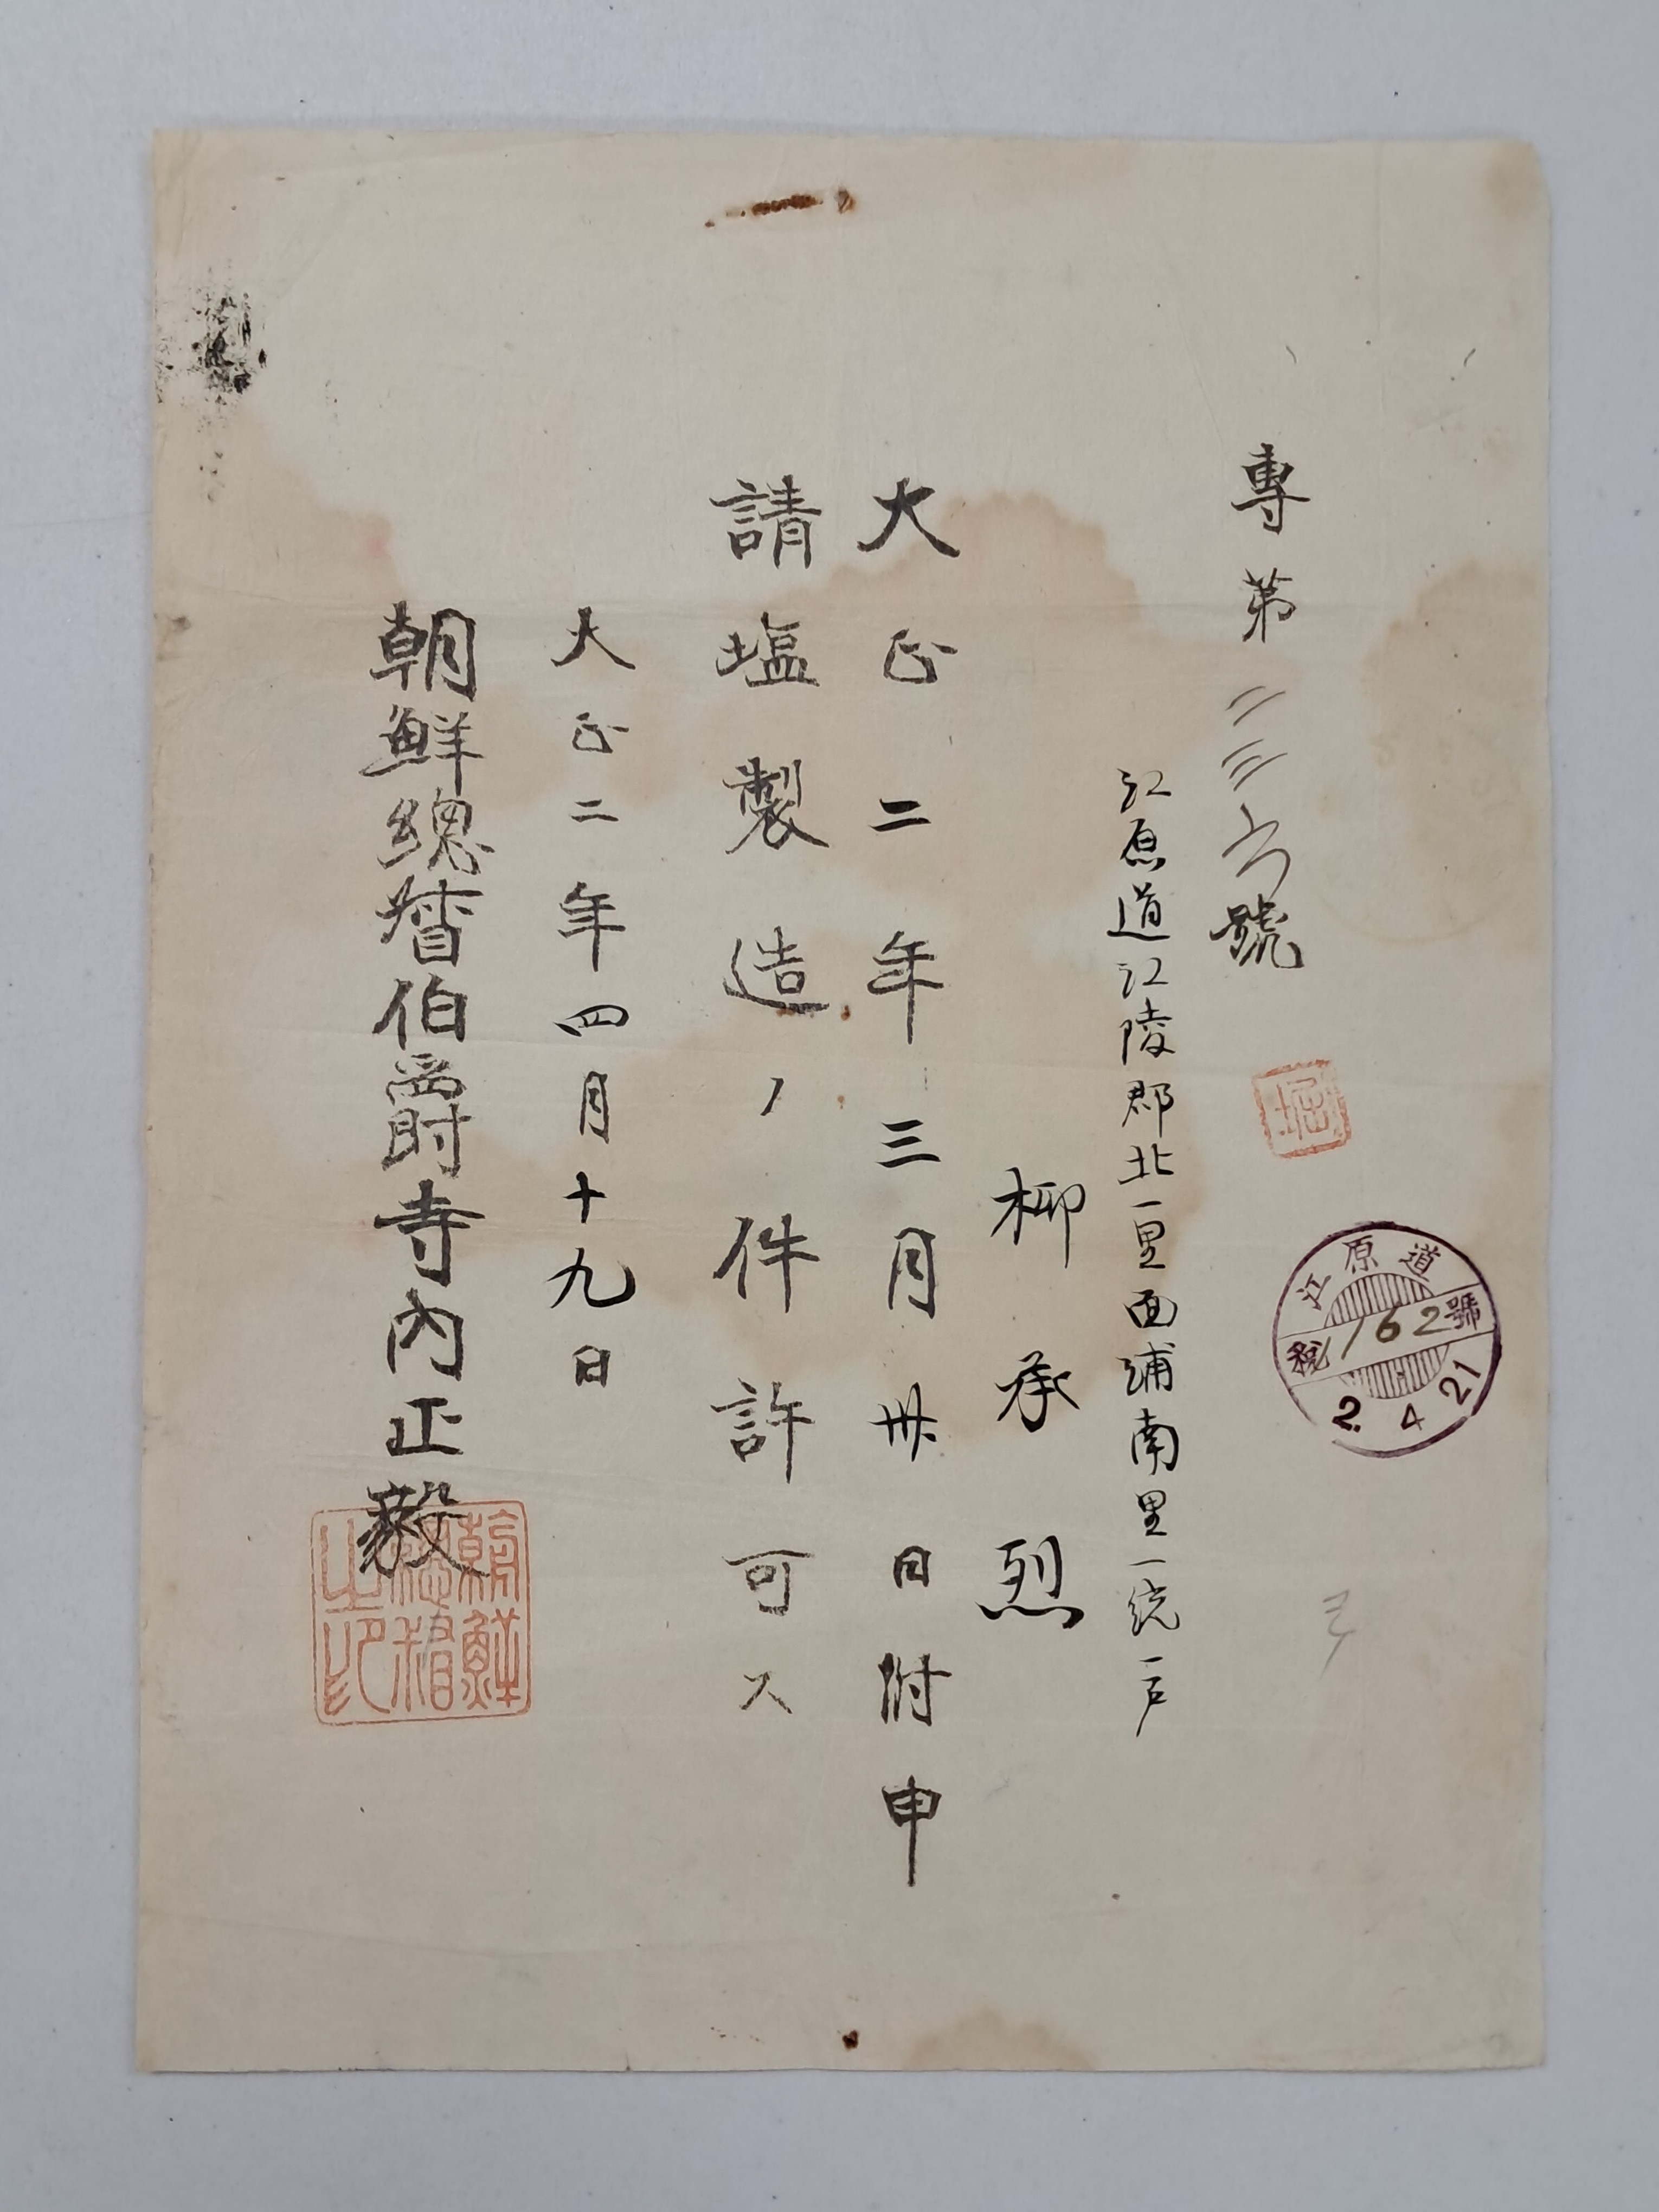 專第二三六號
堀
江原道
税162號
2. 4 21
江原道江陵郡北一里面浦南里一統一戸
柳承烈
大正二年三月卅日附申
請塩製造ノ件許可ス
大正二年四月十九日
朝鮮總督伯爵寺內正毅
朝鮮總督之印